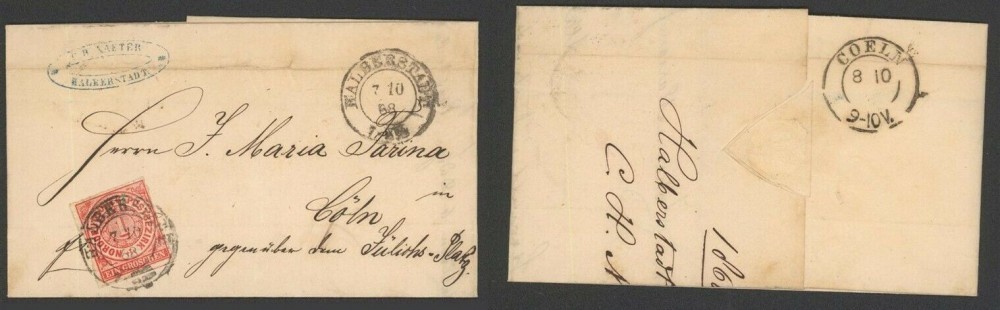 HALBERSTADT
HALBERSTADT
7 10
68
Herrn J. Maria Farina
in
Cöln
gegenüber dem Jülichs-Platz.
HALBERSTADT
7 10
68
NORDDEUTSCHER POSTBEZIRK
1
EIN GROSCHEN
COELN
8 10
9-10V.
Halberstadt
C. H. N
186